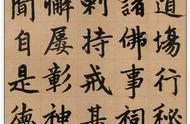 道場行秘
諸佛事祠
剌持戒甚
懈屢彰神
聞自是德